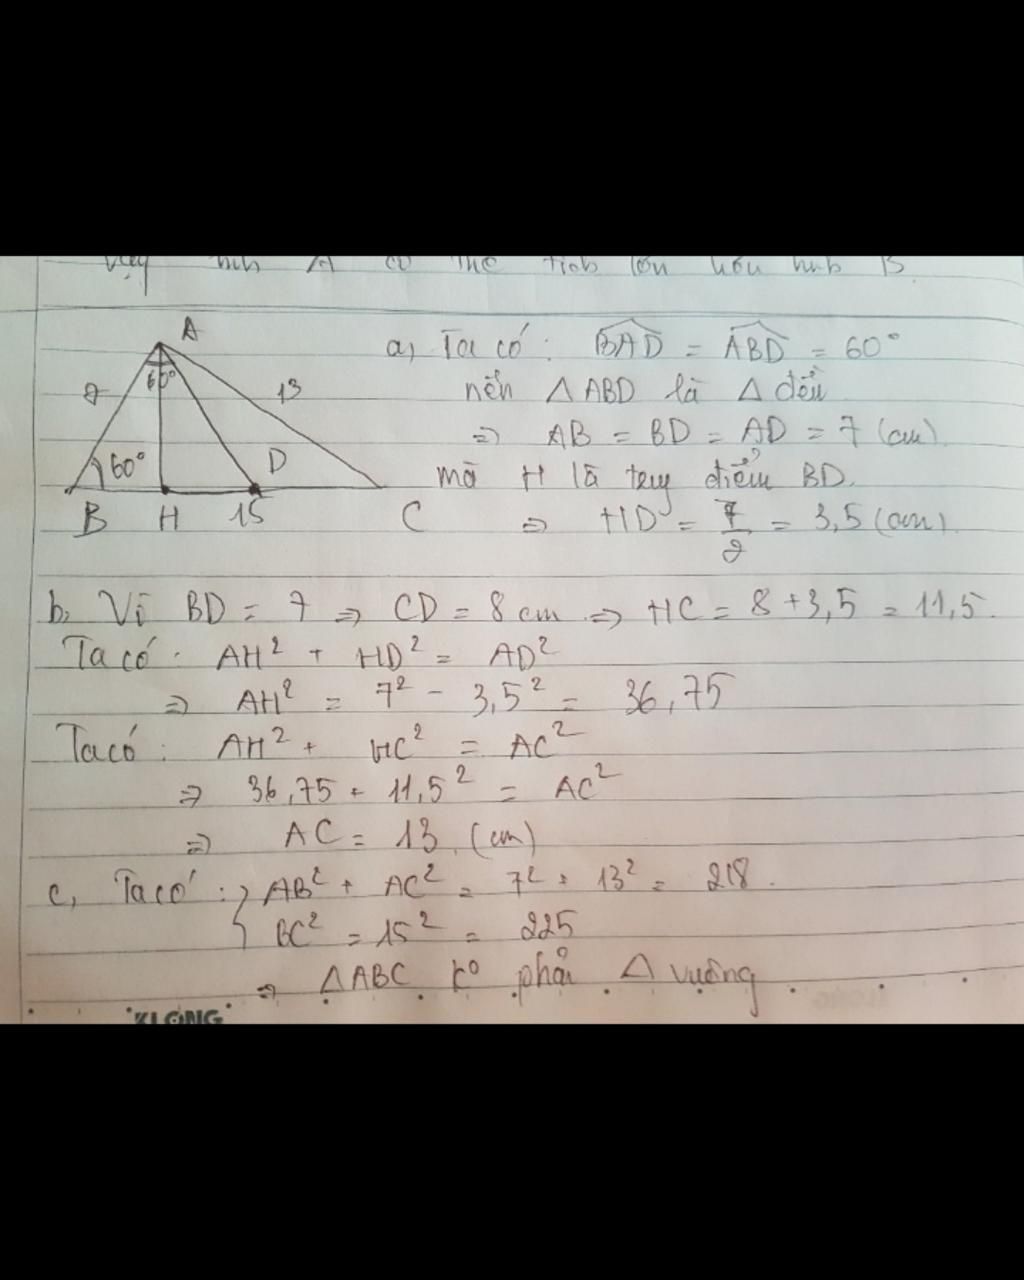 Vậy hình A có thể tích lớn hơn hình B
A
60°
7
13
60°
D
B H 15 C
a, Ta có: BAD = ABD = 60°
nên Δ ABD là Δ đều
⇒ AB = BD = AD = 7 (cm)
mà H là trung điểm BD.
⇒ HD = 7/2 = 3,5 (cm)
b, Vì BD = 7 ⇒ CD = 8 cm ⇒ HC = 8 + 3,5 = 11,5.
Ta có: AH² + HD² = AD²
⇒ AH² = 7² - 3,5² = 36,75
Ta có: AH² + HC² = AC²
⇒ 36,75 + 11,5² = AC²
⇒ AC = 13 (cm)
c, Ta có: { AB² + AC² = 7² + 13² = 218.
BC² = 15² = 225
⇒ ΔABC k° phải Δ vuông
KLONG